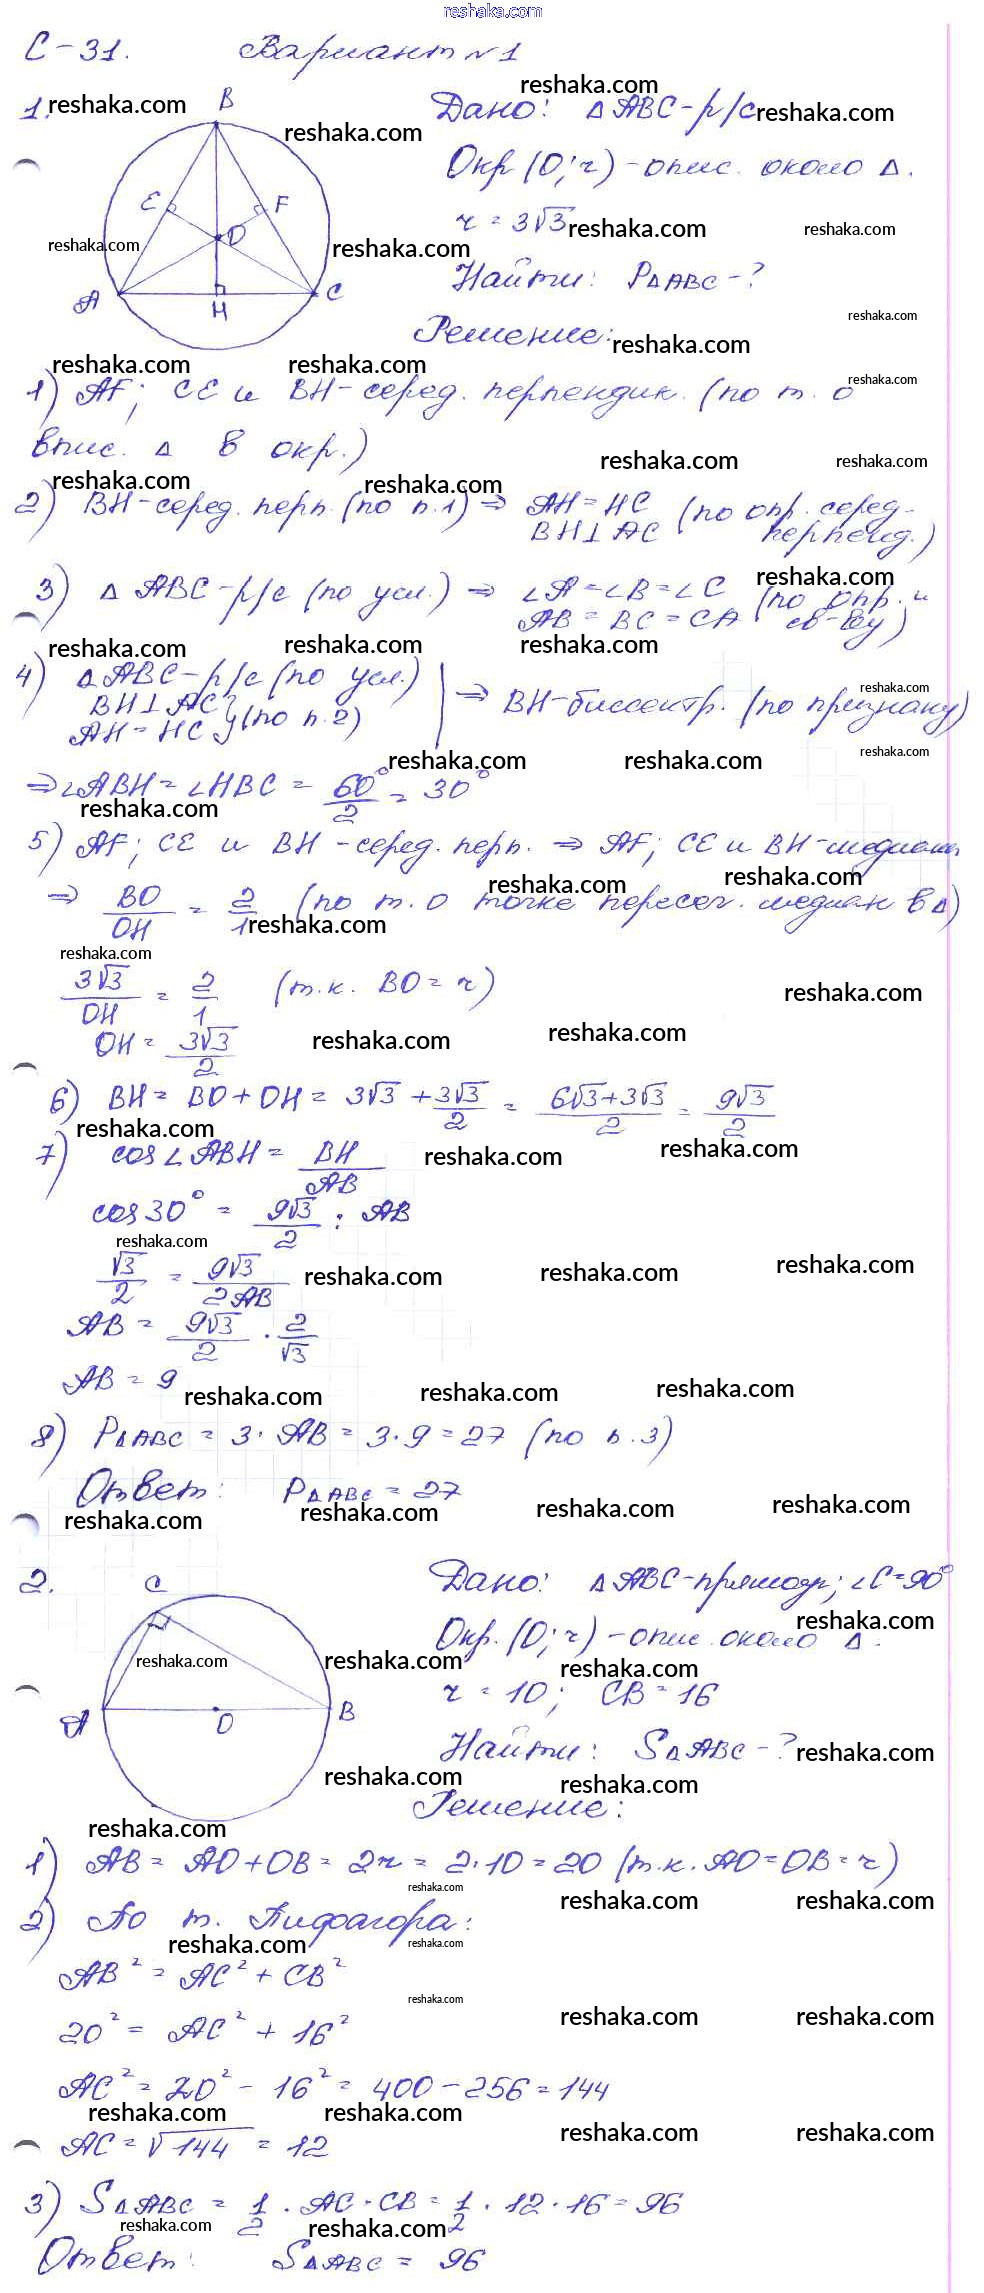 reshaka.com
С-31. Вариант №1
1. Дано: Δ ABC - р/с
Окр (O; r) - опис. около Δ.
r = 3√3
Найти: PΔABC - ?
Решение:
B
E F
O
A H C
1) AF; CE и BH - серед. перпендик. (по т. о
впис. Δ в окр.)
2) BH - серед. перп. (по п.1) ⇒ AH = HC (по опр. серед.
BH ⊥ AC перпенд.)
3) Δ ABC - р/с (по усл.) ⇒ ∠A = ∠B = ∠C (по опр. и
AB = BC = CA св-ву)
4) Δ ABC - р/с (по усл.)
BH ⊥ AC
AH = HC } (по п.2) | ⇒ BH - биссектр. (по признаку)
⇒ ∠ABH = ∠HBC = 60°/2 = 30°
5) AF; CE и BH - серед. перп. ⇒ AF; CE и BH - медианы
⇒ BO/OH = 2/1 (по т. о точке пересеч. медиан в Δ)
3√3/OH = 2/1 (т.к. BO = r)
OH = 3√3/2
6) BH = BO + OH = 3√3 + 3√3/2 = 6√3+3√3/2 = 9√3/2
7) cos ∠ABH = BH/AB
cos 30° = 9√3/2 : AB
√3/2 = 9√3/2AB
AB = 9√3/2 · 2/√3
AB = 9
8) PΔABC = 3 · AB = 3 · 9 = 27 (по п.3)
Ответ: PΔABC = 27
2. Дано: Δ ABC - прямоуг; ∠C = 90°
Окр. (O; r) - опис. около Δ.
r = 10; CB = 16
Найти: SΔABC - ?
Решение:
C
A O B
1) AB = AO + OB = 2r = 2·10 = 20 (т.к. AO = OB = r)
2) По т. Пифагора:
AB² = AC² + CB²
20² = AC² + 16²
AC² = 20² - 16² = 400 - 256 = 144
AC = √144 = 12
3) SΔABC = 1/2 · AC · CB = 1/2 · 12 · 16 = 96
Ответ: SΔABC = 96